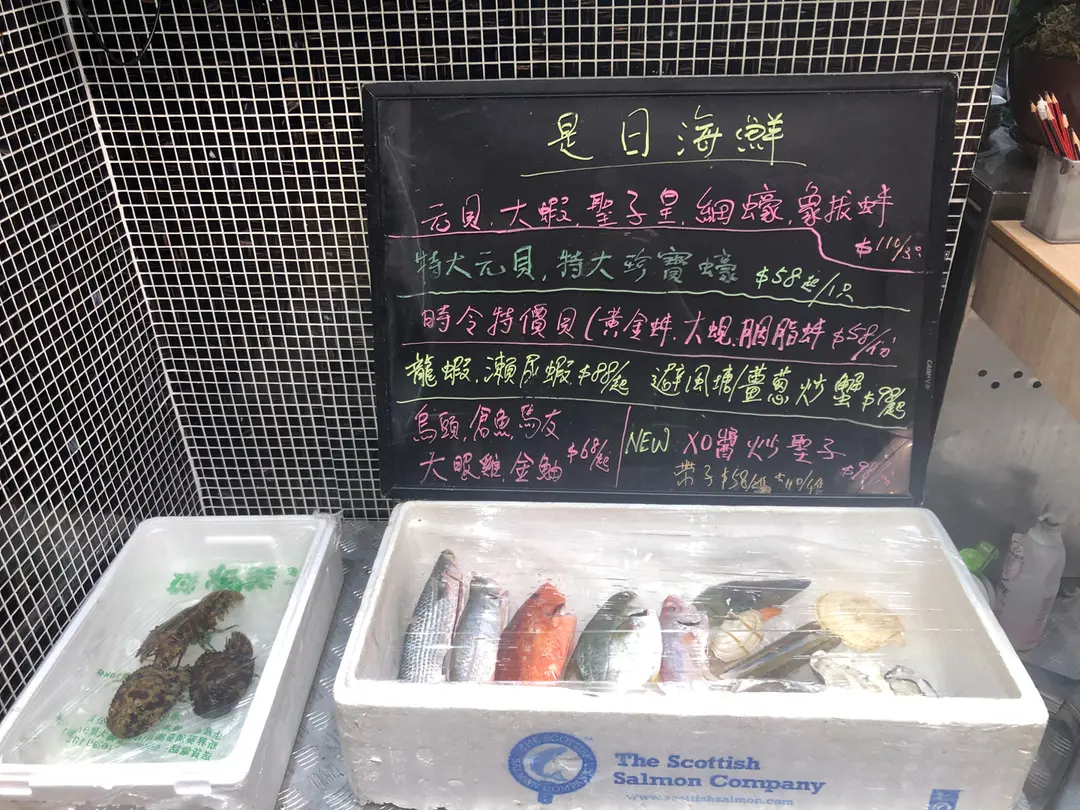 是日海鮮
元貝, 大蝦, 聖子皇, 細蠔, 象拔蚌
$110/3只
特大元貝, 特大珍寶蠔 $58起/1只
時令特價貝(黃金蚌, 大蜆, 胭脂蚌 $58/份
龍蝦, 瀨尿蝦 $88起 避風塘/薑葱炒蟹 $98起
烏頭, 倉魚, 馬友
大眼雞, 金鮋 $68/起
NEW XO醬炒聖子
帶子 $58/
The Scottish
Salmon Company
www.scottishsalmon.com